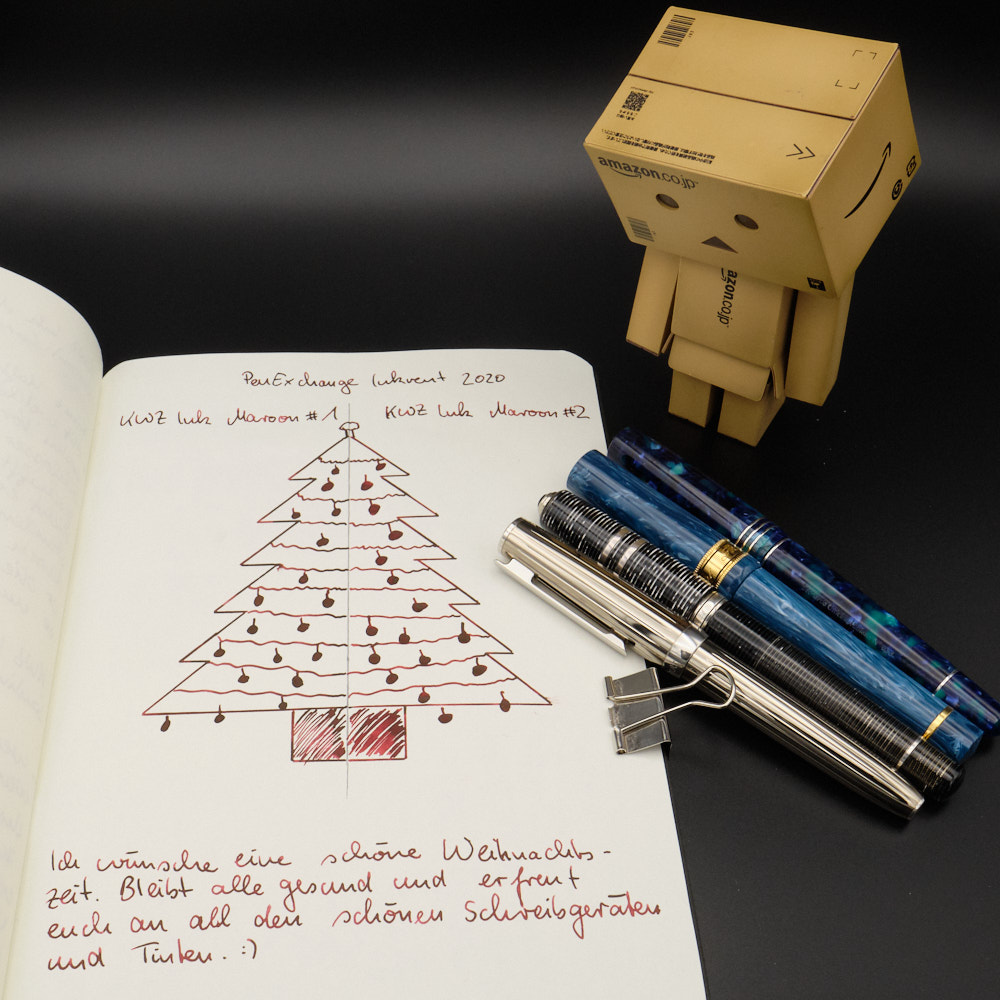 PenExchange Inkvent 2020
KWZ Ink Maroon #1
KWZ Ink Maroon #2
Ich wünsche eine schöne Weihnachts-
zeit. Bleibt alle gesund und erfreut
euch an all den schönen Schreibgeräten
und Tinten. :)
amazon.co.jp
azon.co.jp